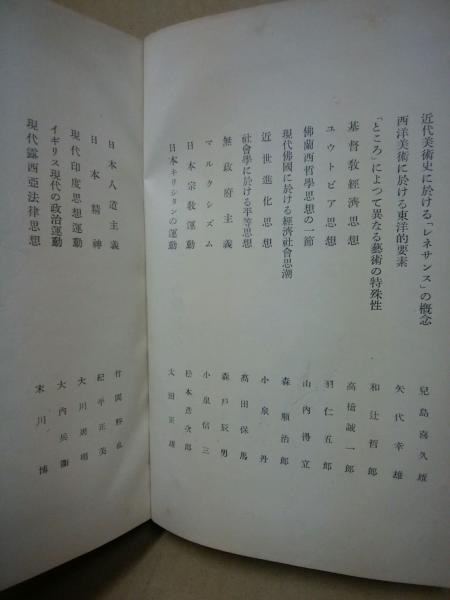 近代美術史に於ける「レネサンス」の概念 兒島喜久雄
西洋美術に於ける東洋的要素 矢代幸雄
「ところ」によつて異なる藝術の特殊性 和辻哲郎
基督敎經濟思想 高橋誠一郎
ユウトピア思想 羽仁五郎
佛蘭西哲學思想の一節 山内得立
現代佛國に於ける經濟社會思潮 森順治郎
近世進化思想 小泉丹
社會學に於ける平等思想 高田保馬
無政府主義 森戸辰男
マルクシズム 小泉信三
日本宗敎運動 松本彥次郎
日本キリシタンの運動 太田正雄
日本人道主義 竹岡勝也
日本精神 紀平正美
現代印度思想運動 大川周明
イギリス現代の政治運動 大内兵衞
現代露西亞法律思想 末川博